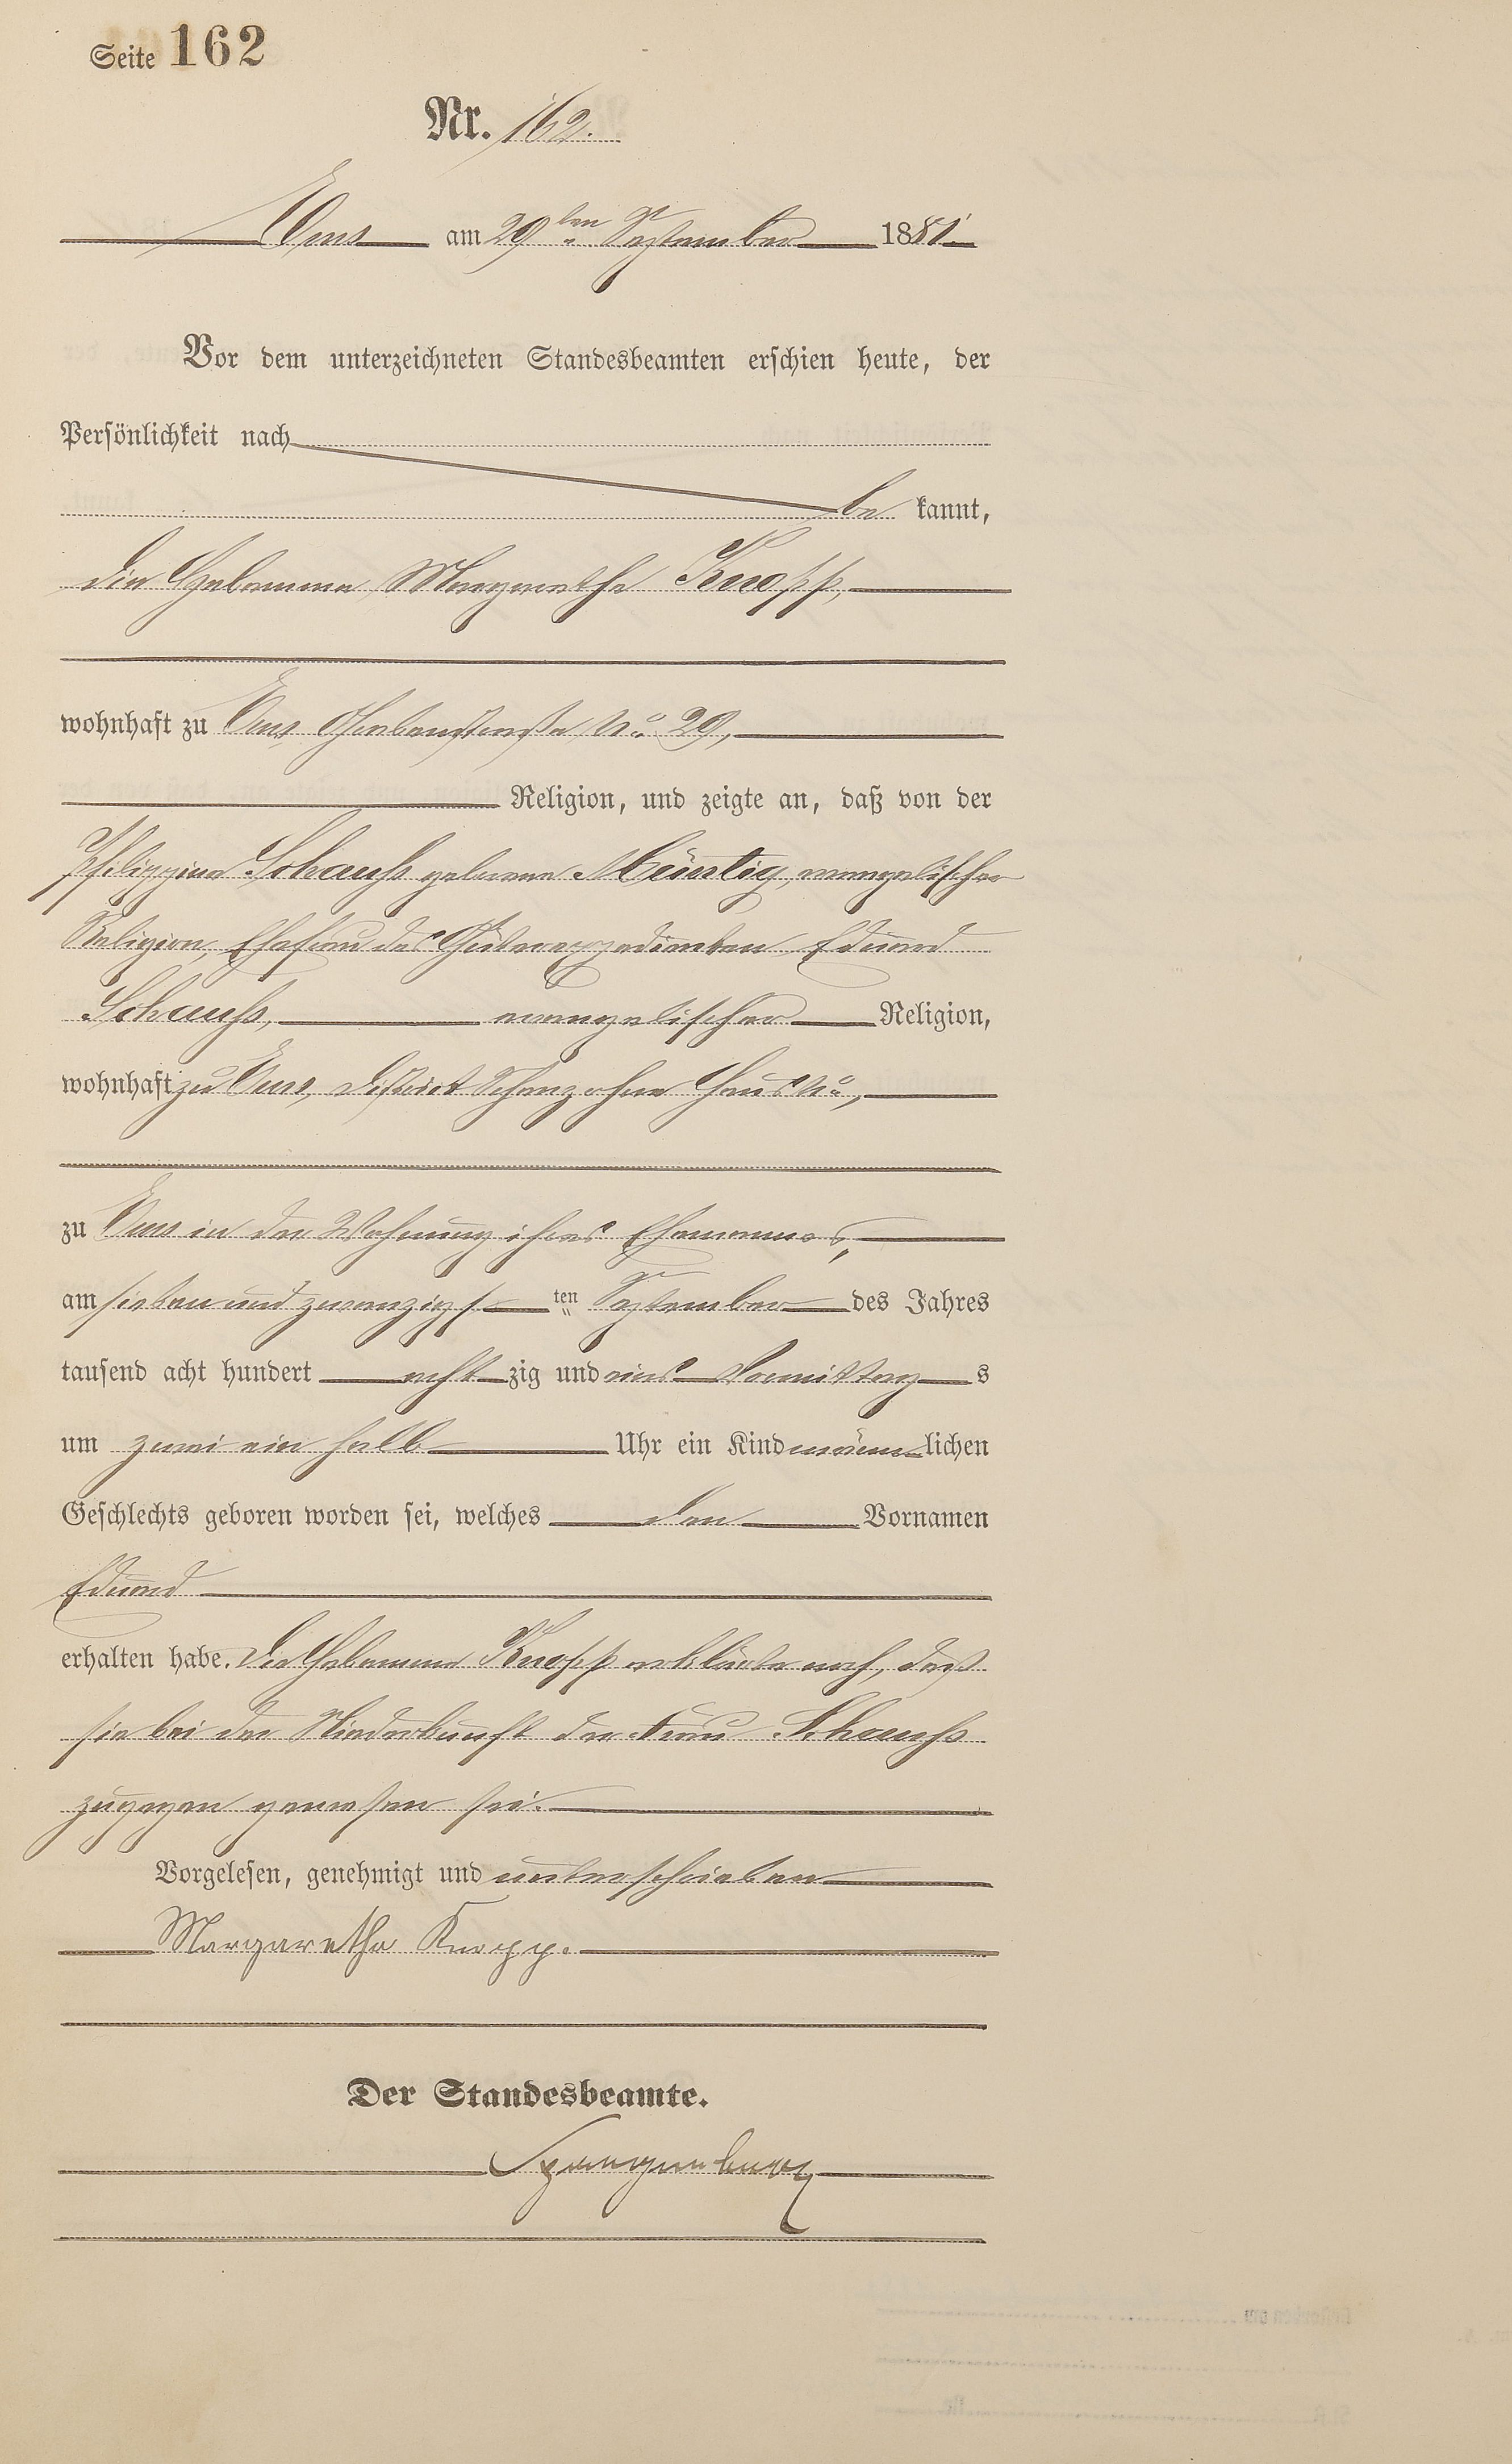 Seite 162
Nr. 162.
Ems am 29ten September 1881.
Vor dem unterzeichneten Standesbeamten erschien heute, der
Persönlichkeit nach
be kannt,
die Hebamme, Margarethe Knopp,
wohnhaft zu Ems, Grabenstraße No 29,
Religion, und zeigte an, daß von der
Philippine Schauß geborene Müntig, evangelischer
Religion, Ehefrau des Güterexpedienten Eduard
Schauß, evangelischer Religion,
wohnhaft zu Ems, District Schanz ohne Haus No,
zu Ems in der Wohnung ihres Ehemannes,
am sieben und zwanzigs ten September des Jahres
tausend acht hundert acht zig und eins Vormittag s
um zwei ein halb Uhr ein Kind männ lichen
Geschlechts geboren worden sei, welches den Vornamen
Eduard
erhalten habe. Die Hebamme Knopp erklärte noch, daß
sie bei der Niederkunft der Frau Schauß
zugegen gewesen sei.
Vorgelesen, genehmigt und unterschrieben
Margaretha Knopp.
Der Standesbeamte.
Spangenberg